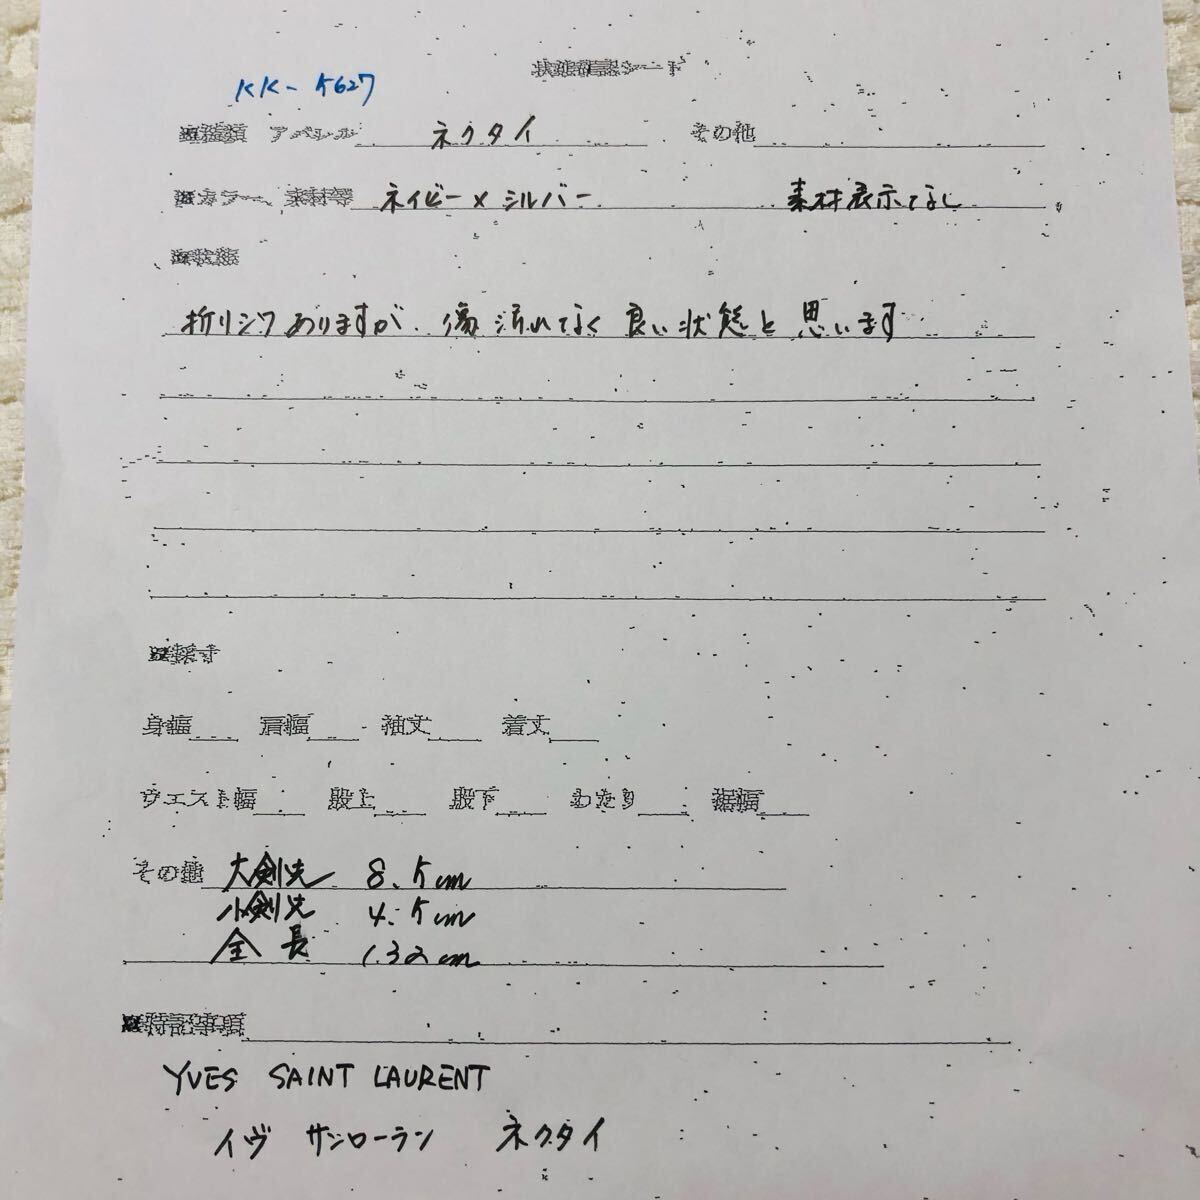 状態確認シート
KK-5627
■種類 アパレル ネクタイ その他
■カラー、素材等 ネイビー×シルバー 素材表示なし
■状態
折りシワありますが、傷汚れなく良い状態と思います
■採寸
身幅 肩幅 袖丈 着丈
ウエスト幅 股上 股下 わたり 裾幅
その他 大剣先 8.5cm
小剣先 4.5cm
全長 132cm
■特記事項
YVES SAINT LAURENT
イヴ サンローラン ネクタイ